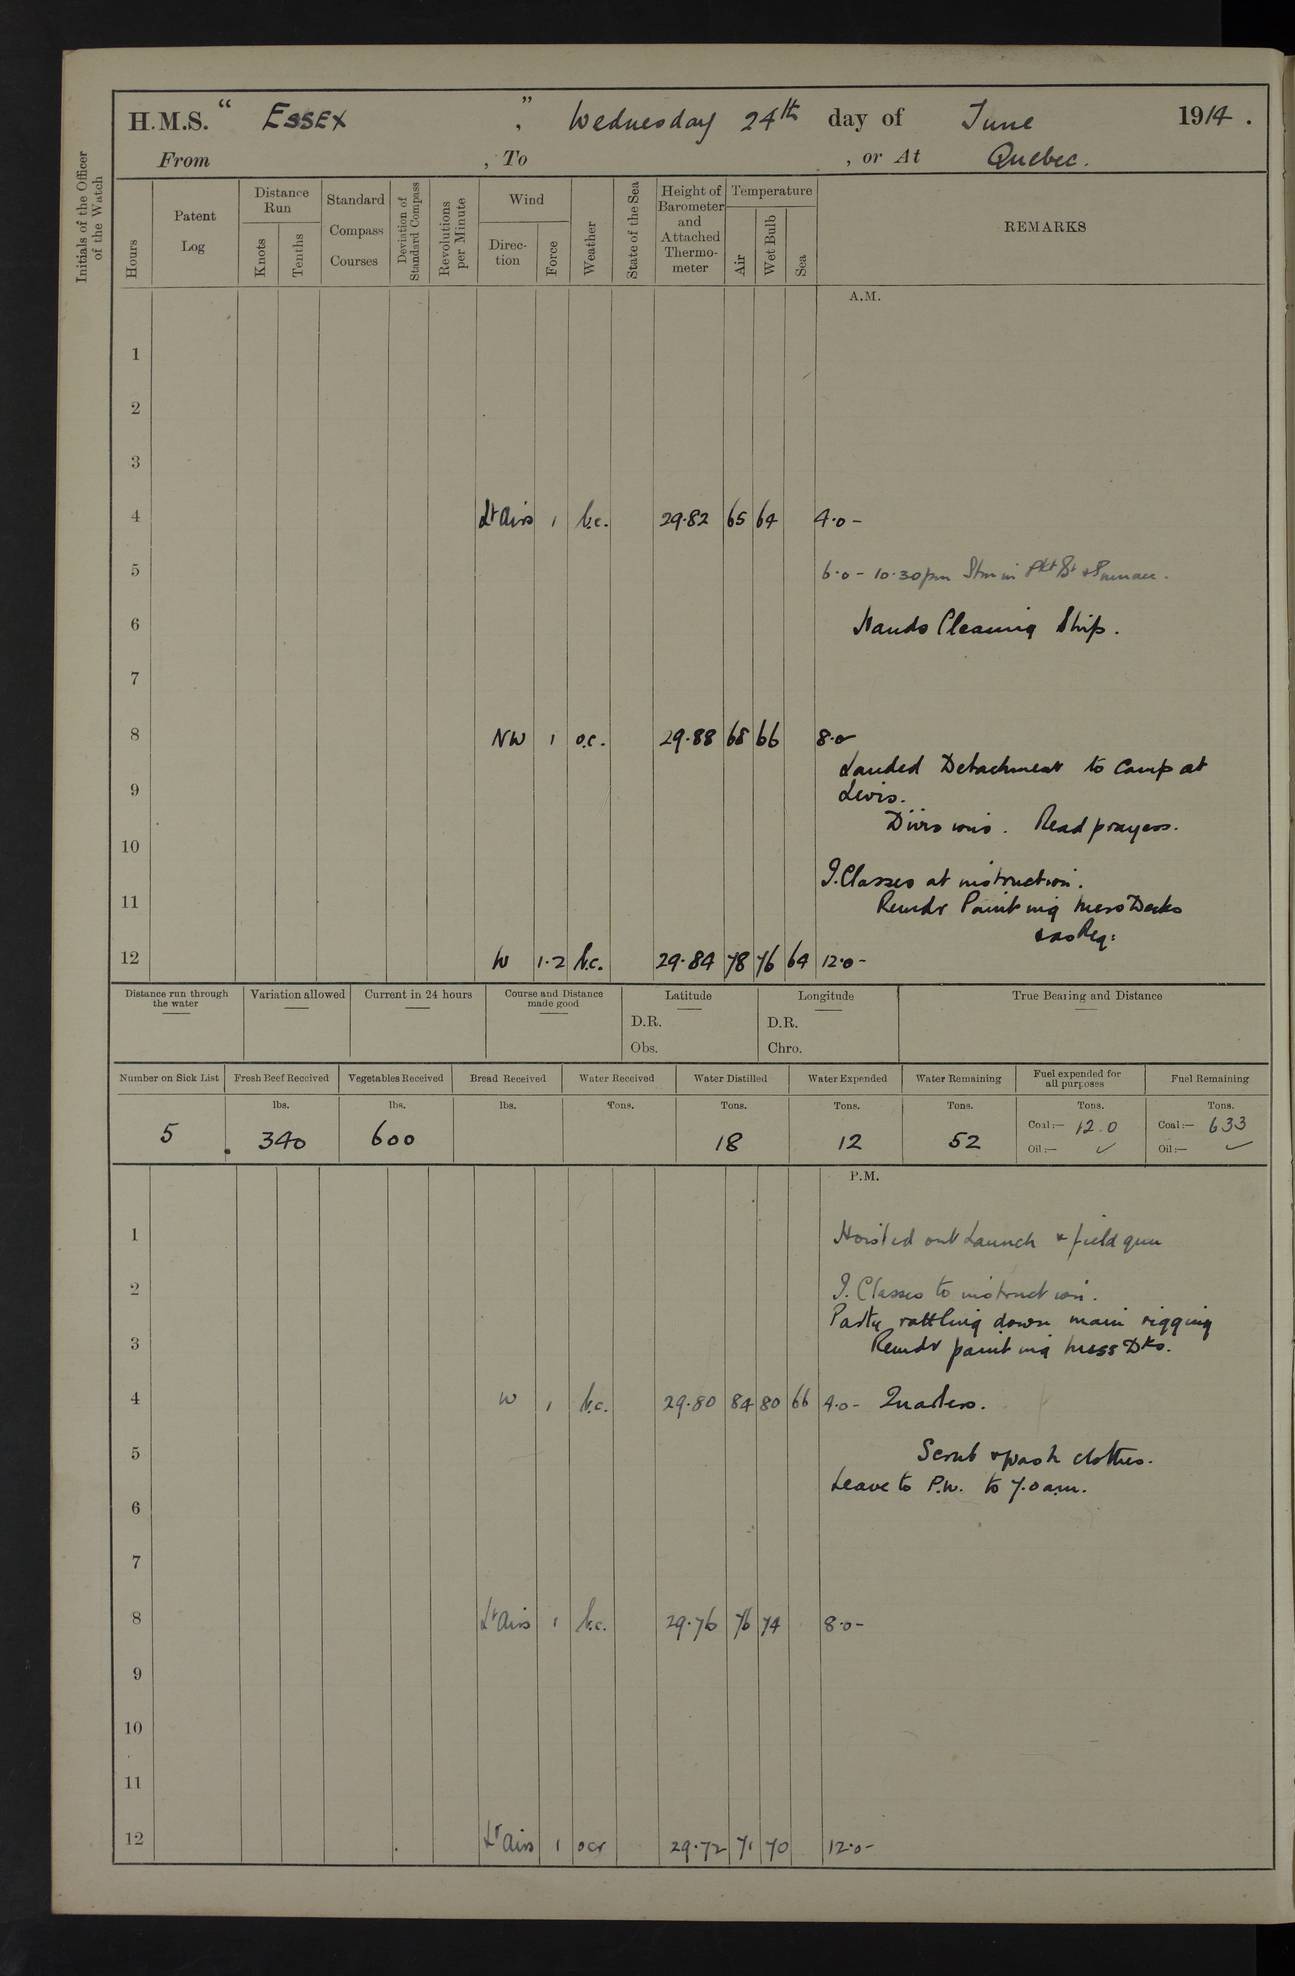 H.M.S. " ESSEX ", Wednesday 24th day of June 1914.
From , To , or At Quebec.
Initials of the Officer of the Watch
Hours
Patent Log
Distance Run
Knots
Tenths
Standard Compass Courses
Deviation of Standard Compass
Revolutions per Minute
Wind
Direc-tion
Force
Weather
State of the Sea
Height of Barometer and Attached Thermo-meter
Temperature
Air
Wet Bulb
Sea
REMARKS
A.M.
1
2
3
4 Lt Airs 1 b.c. 29.82 65 64 4.0-
5 6.0 - 10.30pm Stm in
6 Hands Cleaning Ship.
7
8 NW 1 o.c. 29.88 68 66 8.0
Landed Detachment to Camp at
9 Levis.
Divisions. Read prayers.
10
I. Classes at instruction.
11 Remdr Painting Mess Decks
& as Req:
12 W 1.2 b.c. 29.84 78 76 64 12.0-
Distance run through the water
Variation allowed
Current in 24 hours
Course and Distance made good
Latitude
D.R.
Obs.
Longitude
D.R.
Chro.
True Bearing and Distance
Number on Sick List Fresh Beef Received Vegetables Received Bread Received Water Received Water Distilled Water Expended Water Remaining Fuel expended for all purposes Fuel Remaining
lbs. lbs. lbs. Tons. Tons. Tons. Tons. Tons. Tons.
5 340 600 18 12 52 Coal:— 12.0 Coal:— 633
Oil:— ✓ Oil:— ✓
P.M.
1 Hoisted out Launch & field gun
2 I. Classes to instruction.
Party rattling down main rigging
3 Remdr painting Mess Dks.
4 W 1 b.c. 29.80 84 80 66 4.0- Quarters.
5 Scrub & wash clothes.
Leave to P.W. to 7.0 a.m.
6
7
8 Lt Airs 1 b.c. 29.76 76 74 8.0-
9
10
11
12 Lt Airs 1 ocr 29.72 71 70 12.0-